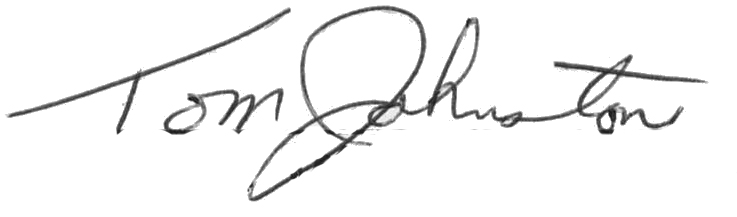 Tom Johnston